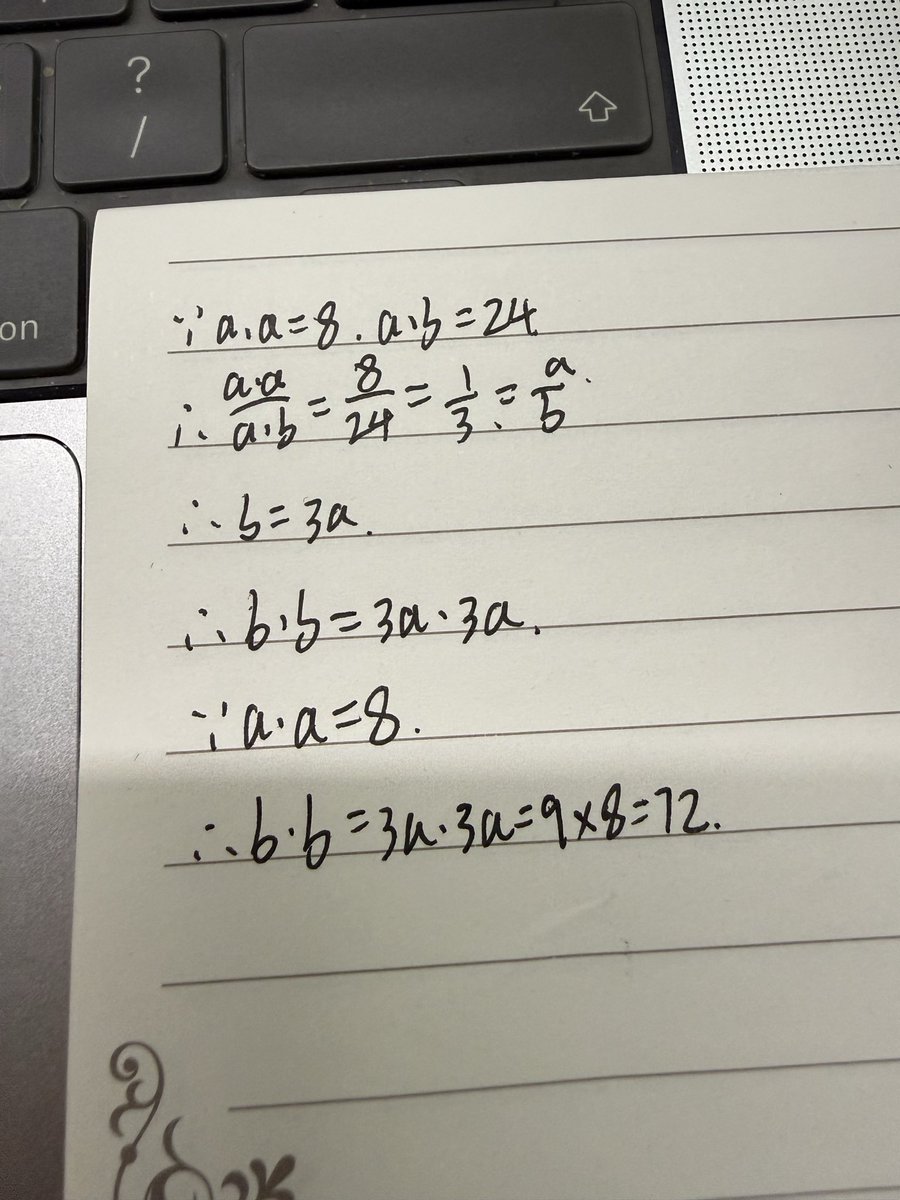 ?
/
on
∵ a·a=8. a·b=24
∴ a·a/a·b = 8/24 = 1/3 = a/b.
∴ b=3a.
∴ b·b=3a·3a.
∵ a·a=8.
∴ b·b=3a·3a=9×8=72.